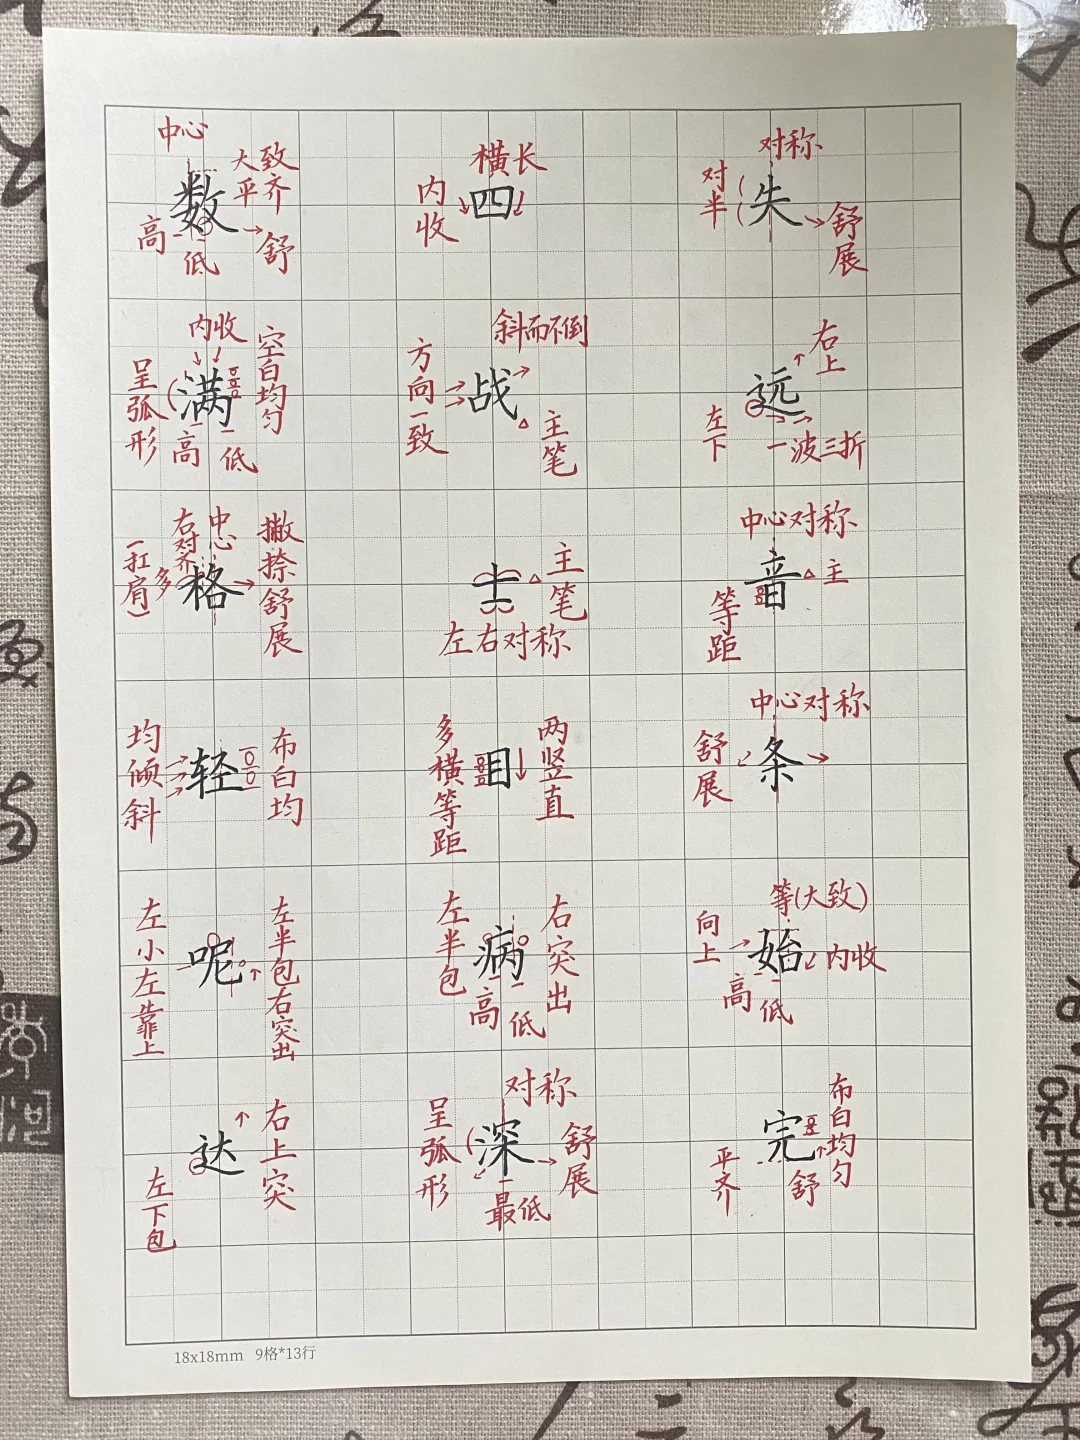 中心
大致
平齐
数
高
低
舒
横长
内收
四
对称
对半
失
舒展
内收
空白均匀
呈弧形
满
高
低
斜而不倒
方向一致
战
主笔
右上
远
左下
一波三折
右对齐
中心
撇捺舒展
(扛肩)
多
格
士
主笔
左右对称
中心对称
音
主
等距
均倾斜
轻
布白均
多横等距
目
两竖直
中心对称
舒展
条
左小左靠上
呢
左半包右突出
左半包
病
右突出
高
低
等(大致)
向上
始
内收
高
低
右上突
达
左下包
对称
呈弧形
深
舒展
最低
布白均匀
完
平齐
舒
18x18mm 9格*13行